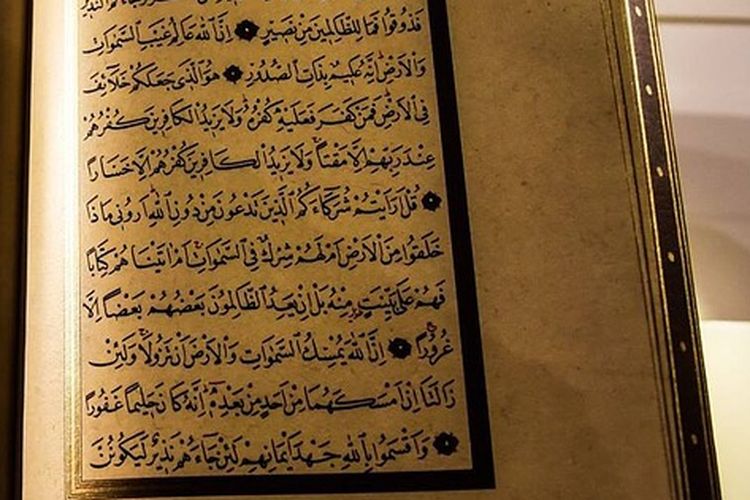 فَذُوقُوا فَمَا لِلظَّالِمِينَ مِنْ نَصِيرٍ ۝ اِنَّ اللّٰهَ عَالِمُ غَيْبِ السَّمٰوَاتِ
وَالْاَرْضِ اِنَّهُ عَلِيمٌ بِذَاتِ الصُّدُورِ ۝ هُوَ الَّذِي جَعَلَكُمْ خَلَٓائِفَ
فِي الْاَرْضِ فَمَنْ كَفَرَ فَعَلَيْهِ كُفْرُهُ وَلَا يَزِيدُ الْكَافِرِينَ كُفْرُهُمْ
عِنْدَ رَبِّهِمْ اِلَّا مَقْتًا وَلَا يَزِيدُ الْكَافِرِينَ كُفْرُهُمْ اِلَّا خَسَارًا
۝ قُلْ اَرَاَيْتُمْ شُرَكَٓاءَكُمُ الَّذِينَ تَدْعُونَ مِنْ دُونِ اللّٰهِ اَرُونِي مَاذَا
خَلَقُوا مِنَ الْاَرْضِ اَمْ لَهُمْ شِرْكٌ فِي السَّمٰوَاتِ اَمْ اٰتَيْنَاهُمْ كِتَابًا
فَهُمْ عَلٰى بَيِّنَتٍ مِنْهُ بَلْ اِنْ يَعِدُ الظَّالِمُونَ بَعْضُهُمْ بَعْضًا اِلَّا
غُرُورًا ۝ اِنَّ اللّٰهَ يُمْسِكُ السَّمٰوَاتِ وَالْاَرْضَ اَنْ تَزُولَا وَلَئِنْ
زَالَتَا اِنْ اَمْسَكَهُمَا مِنْ اَحَدٍ مِنْ بَعْدِهِ اِنَّهُ كَانَ حَلِيمًا غَفُورًا
۝ وَاَقْسَمُوا بِاللّٰهِ جَهْدَ اَيْمَانِهِمْ لَئِنْ جَٓاءَهُمْ نَذِيرٌ لَيَكُونُنَّ